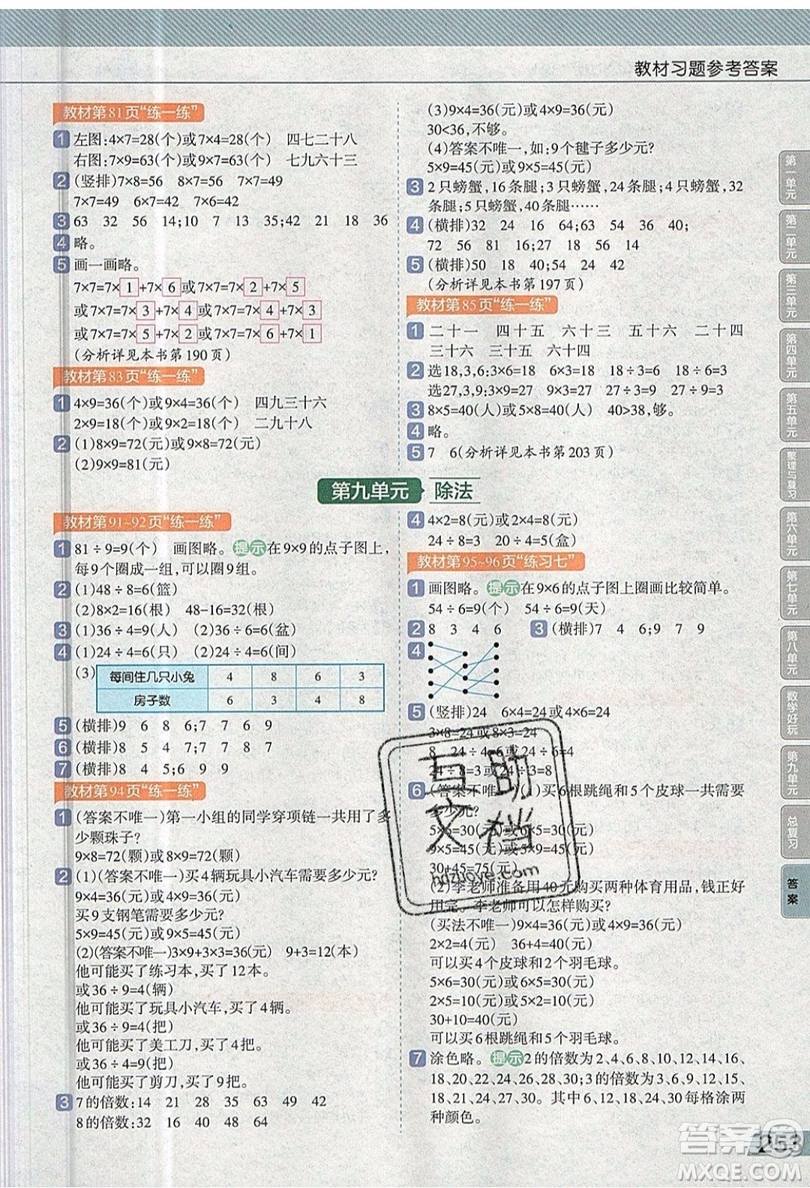 教材习题参考答案
教材第81页“练一练”
1 左图:4×7=28(个)或7×4=28(个) 四七二十八
右图:7×9=63(个)或9×7=63(个) 七九六十三
2 (竖排)7×8=56 8×7=56 7×7=49
7×7=49 6×7=42 7×6=42
3 63 32 56 14;10 7 35;42 21 18 36
4 略。
5 画一画略。
7×7=7×1+7×6或7×7=7×2+7×5
或7×7=7×3+7×4或7×7=7×4+7×3
或7×7=7×5+7×2或7×7=7×6+7×1
(分析详见本书第190页)
教材第83页“练一练”
1 4×9=36(个)或9×4=36(个) 四九三十六
2×9=18(个)或9×2=18(个) 二九十八
2 (1)8×9=72(元)或9×8=72(元)
(2)9×9=81(元)
(3)9×4=36(元)或4×9=36(元)
30<36,不够。
(4)答案不唯一,如:9个毽子多少元?
5×9=45(元)或9×5=45(元)
3 2只螃蟹,16条腿;3只螃蟹,24条腿;4只螃蟹,32条腿;5只螃蟹,40条腿……
4 (横排)32 24 16 64;53 34 36 40;
72 56 81 16;0 18 48 64
5 (横排)50 18 40;54 24 42
(分析详见本书第197页)
教材第85页“练一练”
1 二十一 四十五 六十三 五十六 二十四
三十六 三十六 四十五 四十二
2 选18,3,6:3×6=18 18÷3=6 18÷6=3
选27,3,9:3×9=27 27÷3=9 27÷9=3
3 8×5=40(人)或5×8=40(人) 40>38,够。
4 略。
5 7 6(分析详见本书第203页)
第九单元 除法
教材第91~92页“练一练”
1 81÷9=9(个) 画图略。提示 在9×9的点子图上,
每9个圈成一组,可以圈9组。
2 (1)48÷8=6(篮)
(2)4×4=16(根) 48-16=32(根)
3 (1)36÷4=9(人) (2)36÷6=6(盆)
4 (1)24÷6=4(只) (2)24÷4=6(间)
(3) 每间住几只小兔 4 8 6 3
房子数 6 3 4 8
5 (横排)9 6 8 6;7 7 9 6
6 (横排)8 5 4 7;7 7 8 7
7 (横排)8 4 9;5 9 6
教材第94页“练一练”
1 (答案不唯一)第一小组的同学穿项链一共用了多
少颗珠子?
9×8=72(颗)或8×9=72(颗)
2 (1)(答案不唯一)买4辆玩具小汽车需要多少元?
9×4=36(元)或4×9=36(元)
买9支钢笔需要多少元?
5×9=45(元)或9×5=45(元)
(2)(答案不唯一)3×9+3×3=36(元) 9+3=12(本)
他可能买了练习本,买了12本。
或36÷9=4(辆)
他可能买了玩具小汽车,买了4辆。
或36÷9=4(把)
他可能买了美工刀,买了4把。
或36÷4=9(把)
他可能买了剪刀,买了9把。
3 7的倍数:14 21 28 35 63 42 49
8的倍数:32 16 24 64 48 40
4 4×2=8(元)或2×4=8(元)
24÷8=3 20÷4=5(盒)
教材第95~96页“练习七”
1 画图略。提示 在9×6的点子图上圈画比较简单。
54÷6=9(元) 54÷6=9(天)
2 8 3 4 6 3 (横排)7 9;6 9 7 9
4
5 (竖排)24 6×4=24或4×6=24
3×8=24或8×3=24
8 24÷4=6或24÷6=4
24÷8=3或24÷3=8
6 (答案不唯一)买6根跳绳和5个皮球一共需要
多少元?
5×6=30(元)或6×5=30(元)
9×5=45(元)或5×9=45(元)
30+45=75(元)
(2)李老师准备用40元购买两种体育用品,钱正好
用完。李老师可以怎样购买?
(买法不唯一)9×4=36(元)或4×9=36(元)
2×2=4(元) 36+4=40(元)
可以买4个皮球和2个羽毛球。
5×6=30(元)或6×5=30(元)
2×5=10(元)或5×2=10(元)
可以买6根跳绳和5个羽毛球。
7 涂色略。提示 2的倍数为2、4、6、8、10、12、14、16、
18、20、22、24、26、28、30、32、34、36;6的倍数为6、
12、18、24、30、36。其中6、12、18、24、30、36每格涂两
种颜色。
第一单元
第二单元
第三单元
第四单元
第五单元
整理与复习
第六单元
第七单元
第八单元
数学好玩
第九单元
总复习
答案
互助文档
hdzuoye.com
253
答案圈
MXQE.COM